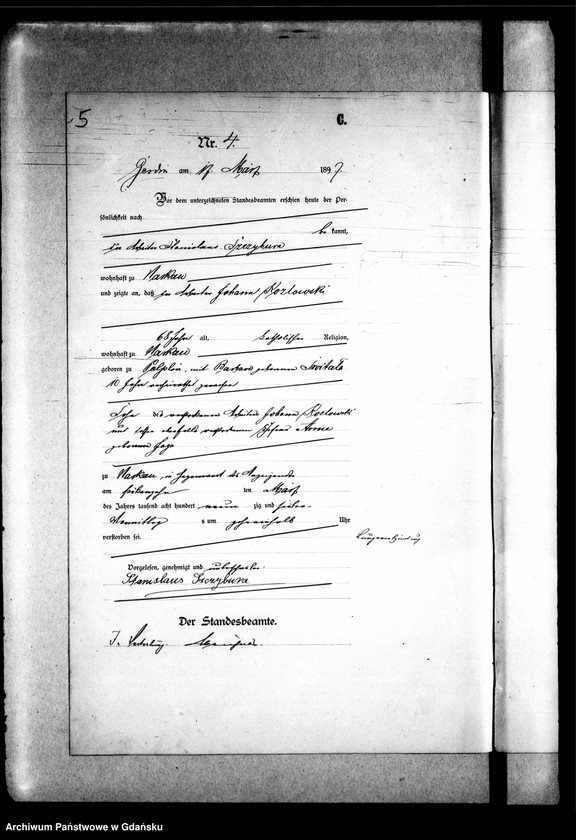 5
C.
Nr. 4.
am 17. März 1897
Vor dem unterzeichneten Standesbeamten erschien heute der Per-
sönlichkeit nach
be kannt,
der Arbeiter Stanislaus
wohnhaft zu Narkau
und zeigte an, daß der Arbeiter Johann Kozlowski
68 Jahr alt, katholischer Religion,
wohnhaft zu Narkau
geboren zu Pelplin, mit Barbara geborenen
10 Jahr verheirathet gewesen
Sohn des verstorbenen Arbeiters Johann Kozlowski
und dessen ebenfalls verstorbenen Ehefrau Anna
geborenen
zu Narkau, in Gegenwart des Anzeigenden
am ten März
des Jahres tausend acht hundert neun zig und sieben
Vormittags s um Uhr
verstorben sei.
Vorgelesen, genehmigt und unterschrieben
Stanislaus
Der Standesbeamte.
Archiwum Państwowe w Gdańsku